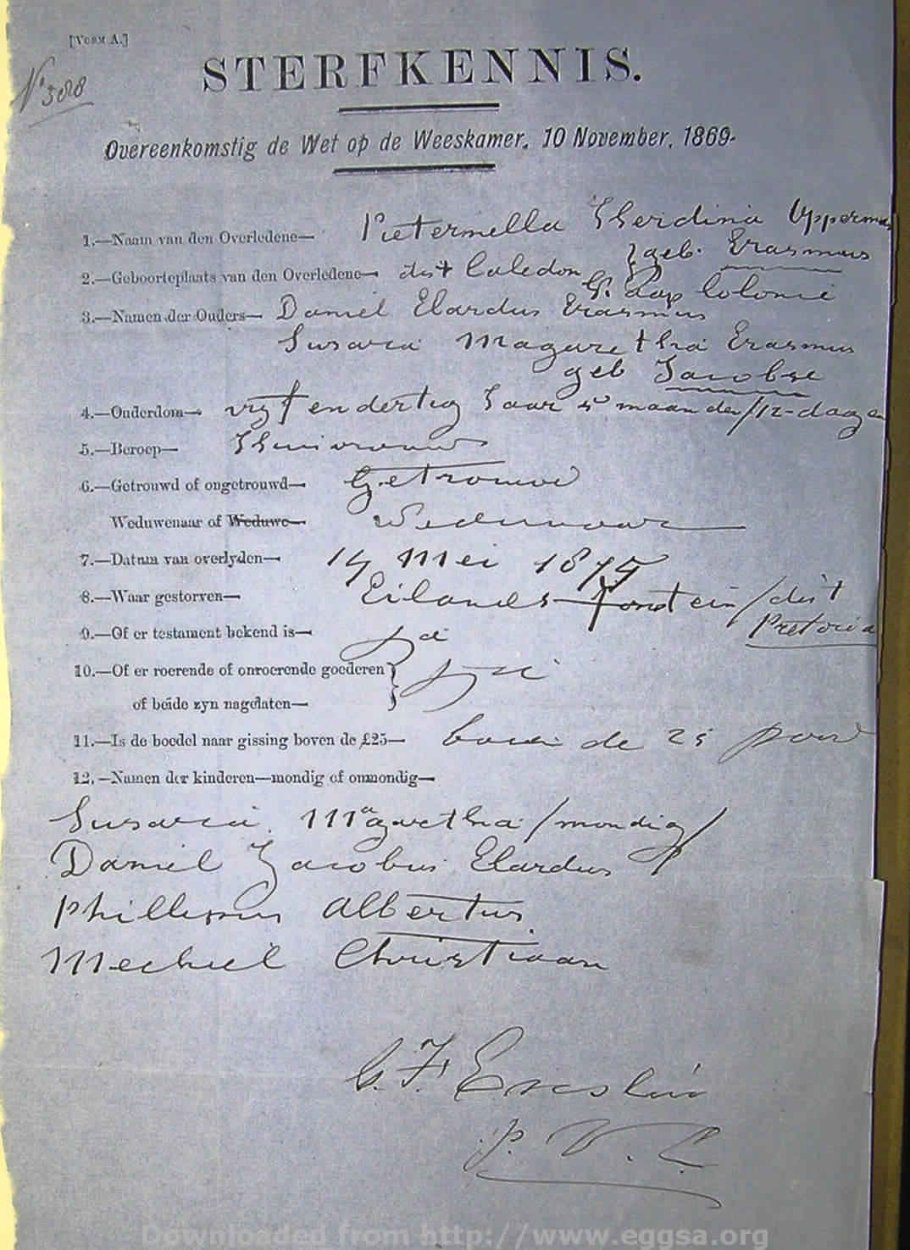 [VORM A.]
No 388
STERFKENNIS.
Overeenkomstig de Wet op de Weeskamer, 10 November, 1869.
1.—Naam van den Overledene— Pieternella Gherdina Opperman
geb. Erasmus
2.—Geboorteplaats van den Overledene— dist Caledon
G. Kaap Colonie
3.—Namen der Ouders— Daniel Elardus Erasmus
Susara Magaretha Erasmus
geb Jacobse
4.—Ouderdom— vyf en dertig Jaar 5 maanden/12-dagen
5.—Beroep—
6.—Getrouwd of ongetrouwd— Getrouwd
Weduwenaar of Weduwe— Weduwnaar
7.—Datum van overlyden— 14 Mei 1875
8.—Waar gestorven— Eilandsfontein/dist
Pretoria
9.—Of er testament bekend is— Ja
10.—Of er roerende of onroerende goederen } Ja
of beide zyn nagelaten—
11.—Is de boedel naar gissing boven de £25— boven de 25 pond
12.—Namen der kinderen—mondig of onmondig—
Susara Magaretha/mondig/
Daniel Jacobus Elardus
Phillippus Albertus
Mechiel Christiaan
Downloaded from http://www.eggsa.org